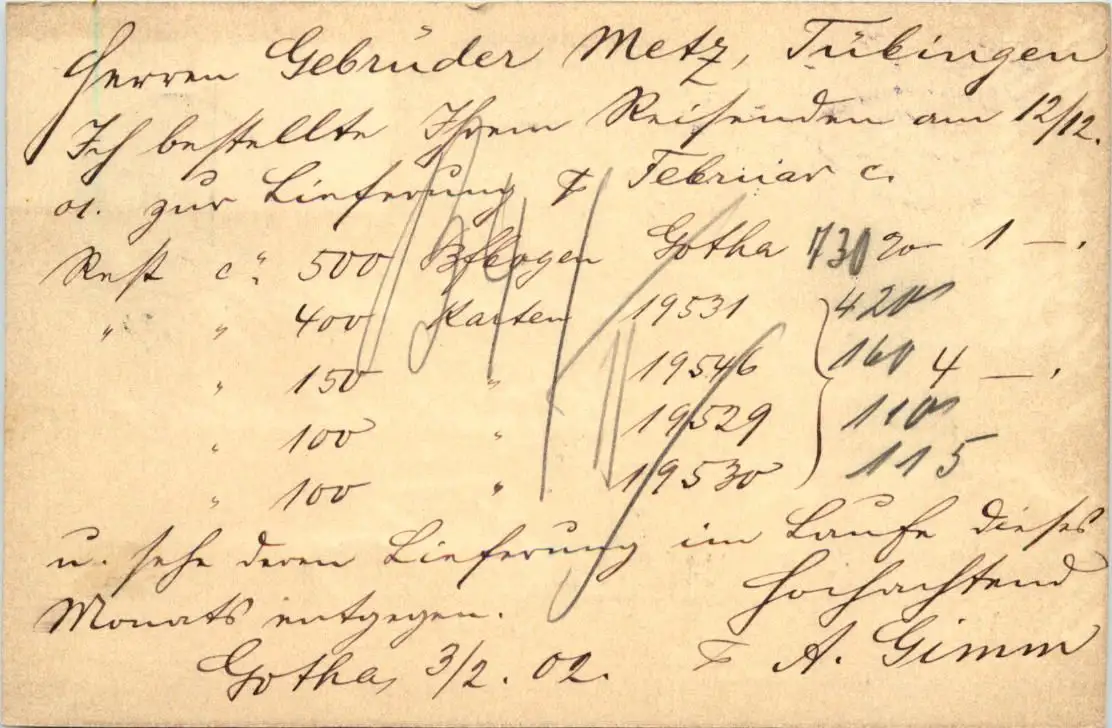 Herren Gebrüder Metz, Tübingen
Ich bestellte Ihrem Reisenden am 12/12.
01. zur Lieferung Februar c.
Rest c. 500 Gotha 730 1 —.
" " 400 Karten 19531 420
" 150 " 19546 160 4 —.
" 100 " 19529 110
" 100 " 19530 115
u. sehe deren Lieferung im Laufe dieses
Monats entgegen. Hochachtend
Gotha, 3/2. 02. A. Gimm